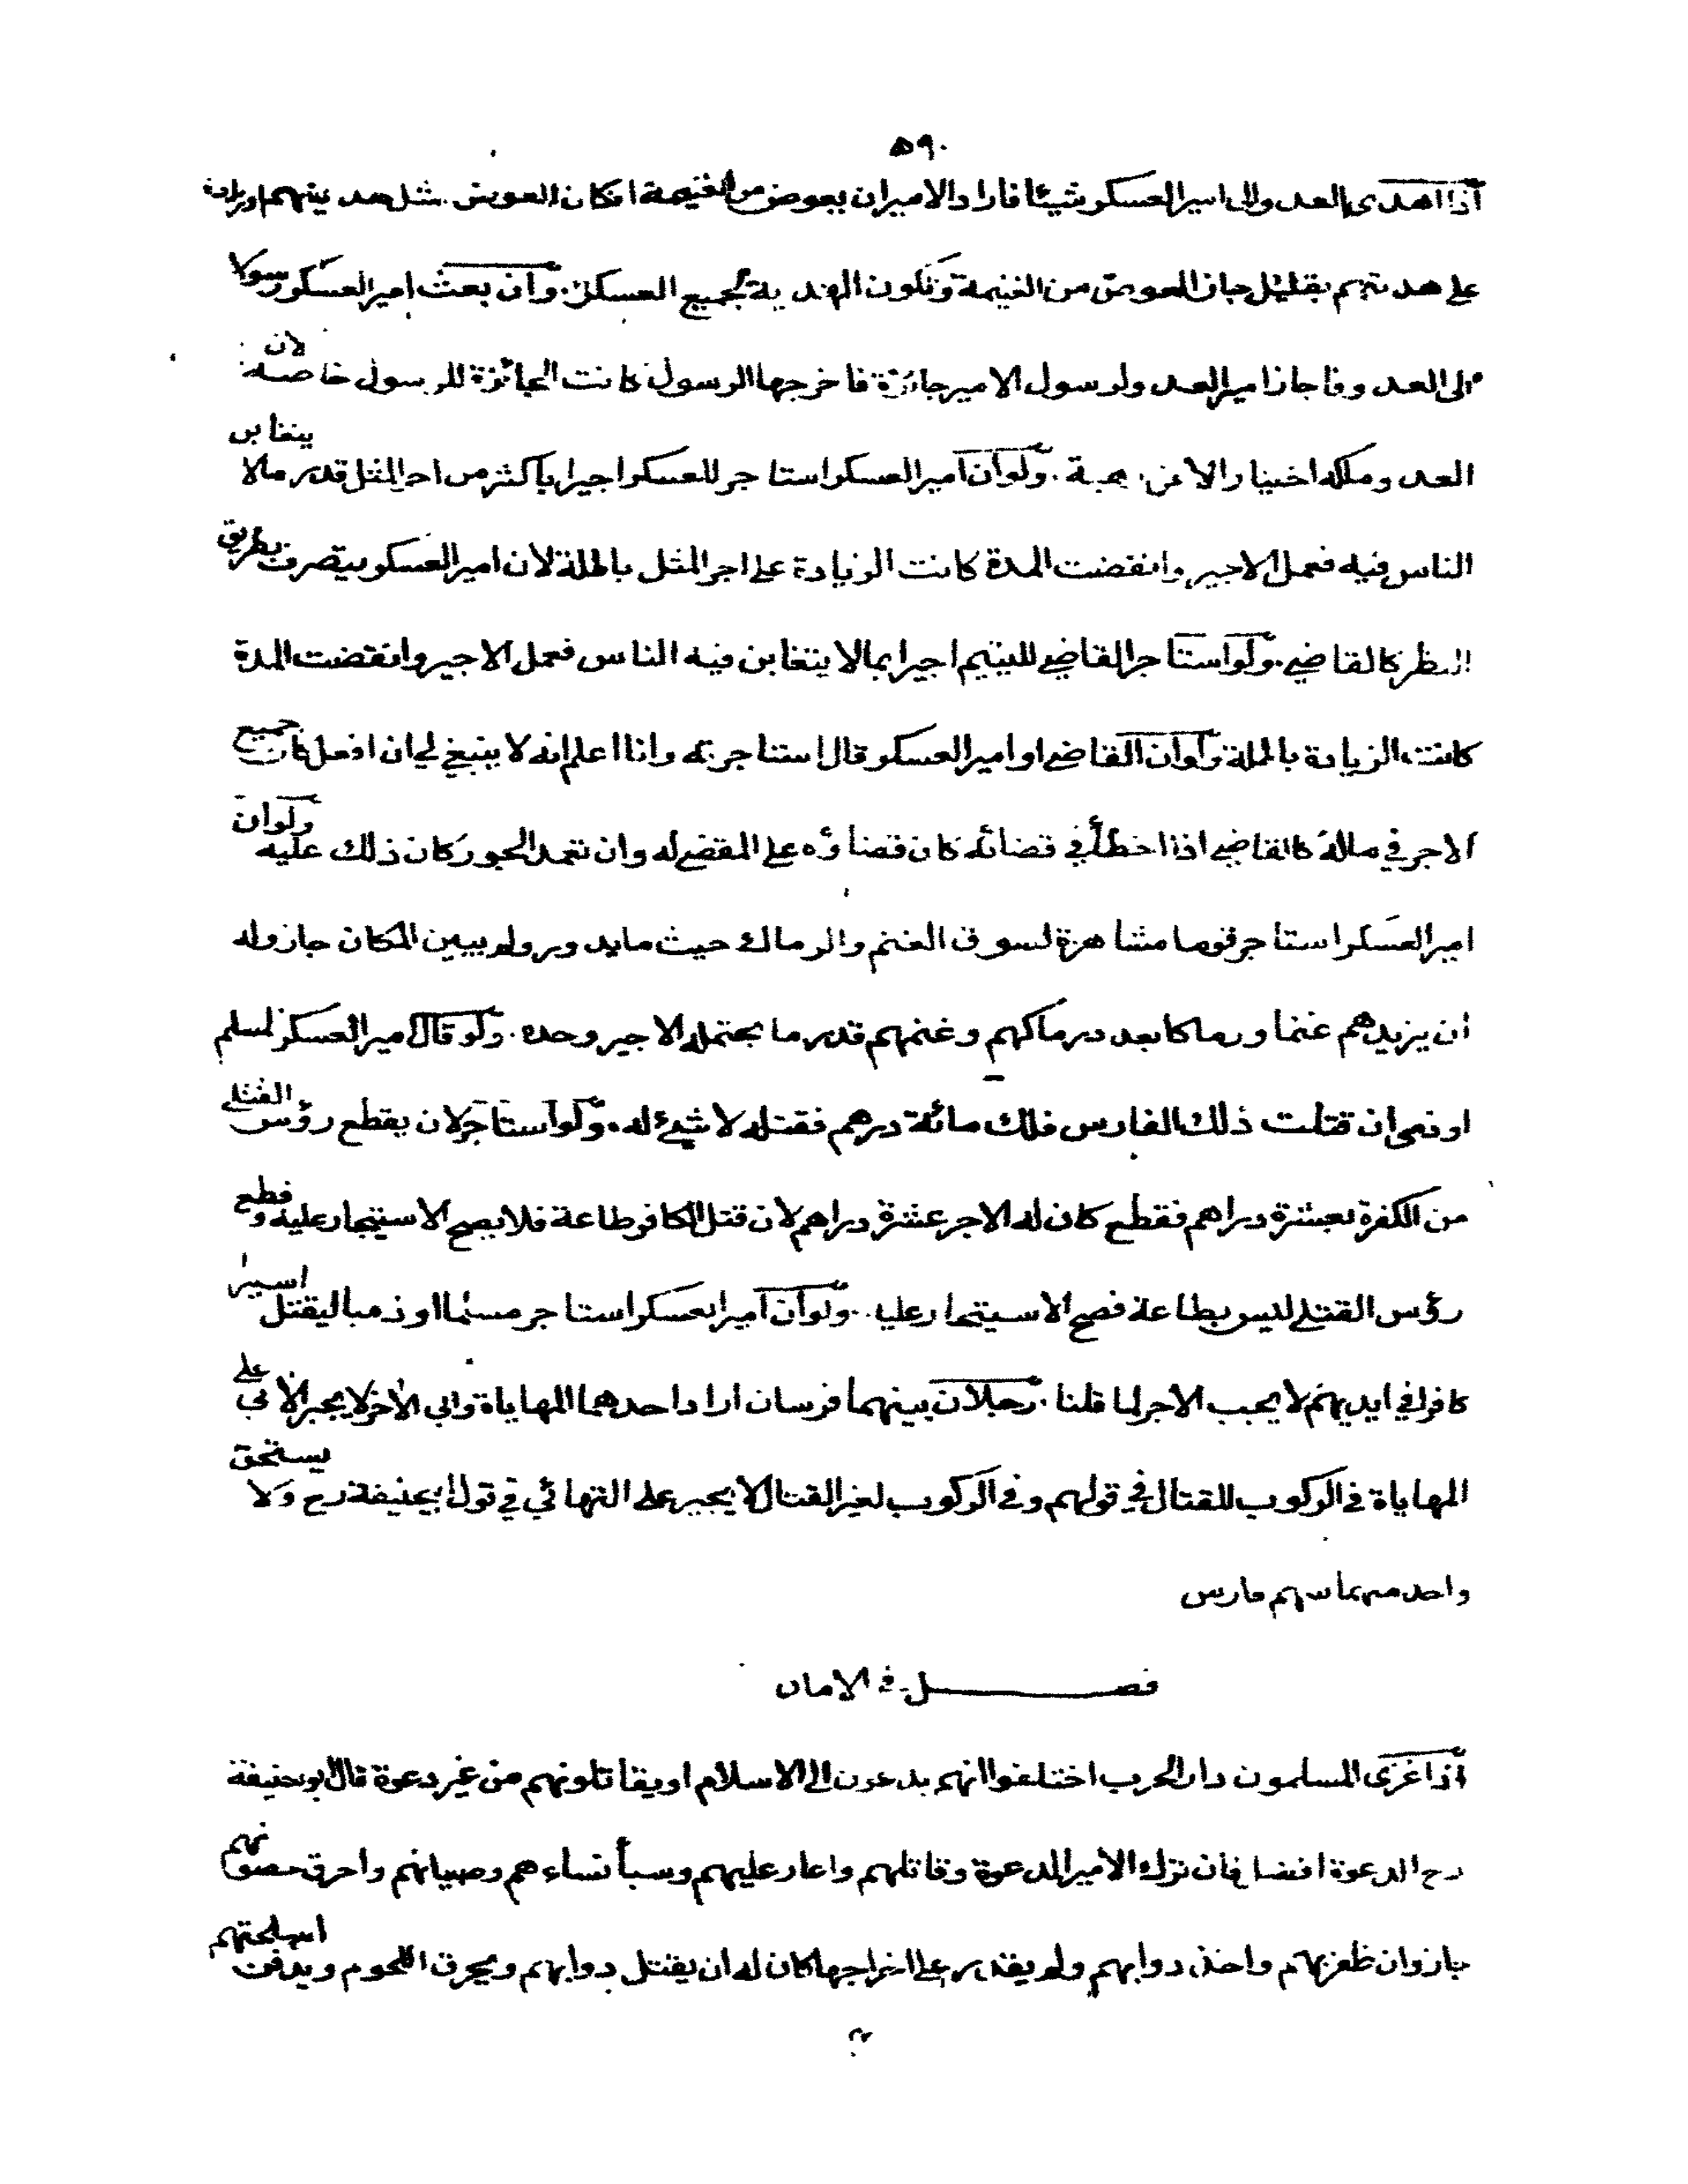 ٥٩٠
اذا اهدى العدو الى امير العسكر شيئا فاراد الامير ان يعوض من الغنيمة ان كان العوض مثل هديتهم او زيادة
على هديتهم بقليل جاز العوض من الغنيمة وتكون الهدية لجميع العسكر. وان بعث امير العسكر رسولا
الى العدو فاجاز امير العدو لرسول الامير جائزة فاخرجها الرسول كانت الجائزة للرسول خاصة لان
العدو ملكه اختيارا لا عن هبة. ولو ان امير العسكر استاجر للعسكر اجيرا باكثر من اجر المثل قدر ما لا يتغابن
الناس فيه فعمل الاجير وانقضت المدة كانت الزيادة على اجر المثل باطلة لان امير العسكر يتصرف بطريق
النظر كالقاضي. ولو استاجر القاضي لليتيم اجيرا بما لا يتغابن فيه الناس فعمل الاجير وانقضت المدة
كانت الزيادة باطلة ولو ان القاضي او امير العسكر قال استاجرته وانا اعلم انه لا ينبغي لي ان افعل كان جميع
الاجر في ماله كالقاضي اذا اخطأ في قضائه كان قضاؤه على المقضي له وان تعمد الجور كان ذلك عليه ولو ان
امير العسكر استاجر قوما مشاهرة لسوق الغنم والرماك حيث ما يدور ولم يبين المكان جاز وله
ان يزيدهم غنما ورماكا بعد رماكهم وغنمهم قدر ما يحتمله الاجير وحده. ولو قال امير العسكر لمسلم
او ذمي ان قتلت ذلك الفارس فلك مائة درهم فقتله لا شيئ له. ولو استاجر لان يقطع رؤس القتلى
من الكفرة بعشرة دراهم فقطع كان له الاجر عشرة دراهم لان قتل الكافر طاعة فلا يصح الاستيجار عليه وقطع
رؤس القتلى ليس بطاعة فصح الاستيجار عليه. ولو ان امير العسكر استاجر مسلما او ذميا ليقتل اسيرا
كافرا في ايديهم لا يجب الاجر لما قلنا. رجلان بينهما فرسان اراد احدهما المهاياة وابى الاخر لا يجبر الابي على
المهاياة في الركوب للقتال في قولهم وفي الركوب لغير القتال لا يجبر على التهائي في قول ابيحنيفة رح ولا يستحق
واحد منهما سهم فارس
فصل في الامان
اذا غزى المسلمون دار الحرب اختلفوا انهم يدعون الى الاسلام او يقاتلونهم من غير دعوة قال ابوحنيفة
رح الدعوة افضل فان ترك الامير الدعوة وقاتلهم واغار عليهم وسبأ نساءهم وصبيانهم واحرق حصونهم
جاز وان ظفر بهم واخذ دوابهم ولم يقدر على اخراجها كان له ان يقتل دوابهم ويحرق اللحوم ويدفن اسلحتهم